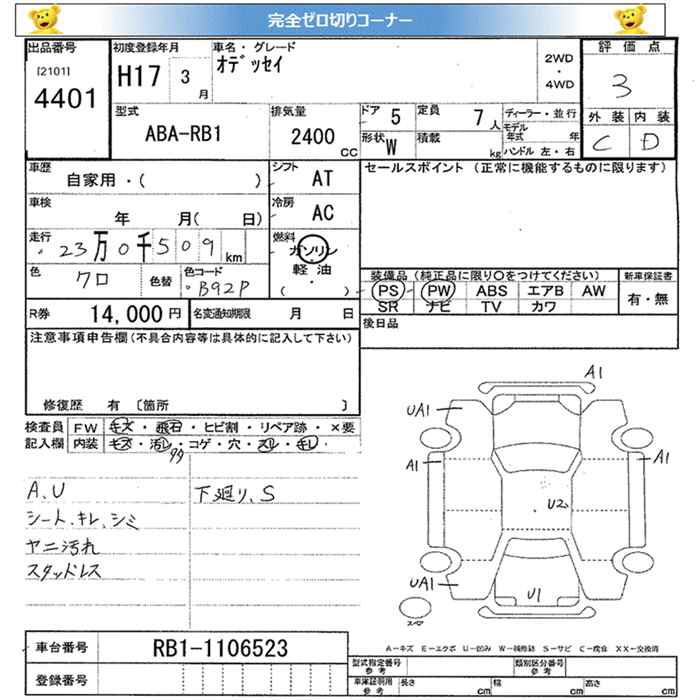 完全ゼロ切りコーナー
出品番号 初度登録年月 車名・グレード 評価点
[2101] 4401 H17 3月 オデッセイ 2WD・4WD 3
型式 排気量 ドア 5 定員 7人 ディーラー・並行 外装 内装
ABA-RB1 2400cc 形状 W 積載 kg モデル年式 年 ハンドル 左・右 C D
車歴 シフト セールスポイント (正常に機能するものに限ります)
自家用・( ) AT
車検 冷房
年 月( 日) AC
走行 燃料
23万0千509km ガソリン
軽油
・
( )
色 色替 色コード 装備品 (純正品に限り○をつけてください) 新車保証書
クロ B92P PS PW ABS エアB AW 有・無
SR ナビ TV カワ
R券 14,000円 名変通知期限 月 日 後日品
注意事項申告欄(不具合内容等は具体的に記入して下さい)
修復歴 有 〔箇所 〕
検査員 FW キズ・飛石・ヒビ割・リペア跡・×要
記入欄 内装 キズ・汚レ・コゲ・穴・スレ・キレ・
タタ
A、U 下廻り、S
シート、キレ、シミ
ヤニ汚れ
スタッドレス
A1
UA1
A1 A1
U2
UA1 U1
スペア
A－キズ E－エクボ U－凹み W－補修跡 S－サビ C－腐食 XX－交換済
車台番号 RB1-1106523
登録番号
型式指定番号 参考 類別区分番号 参考
車庫証明用 参考 長さ cm 幅 cm 高さ cm